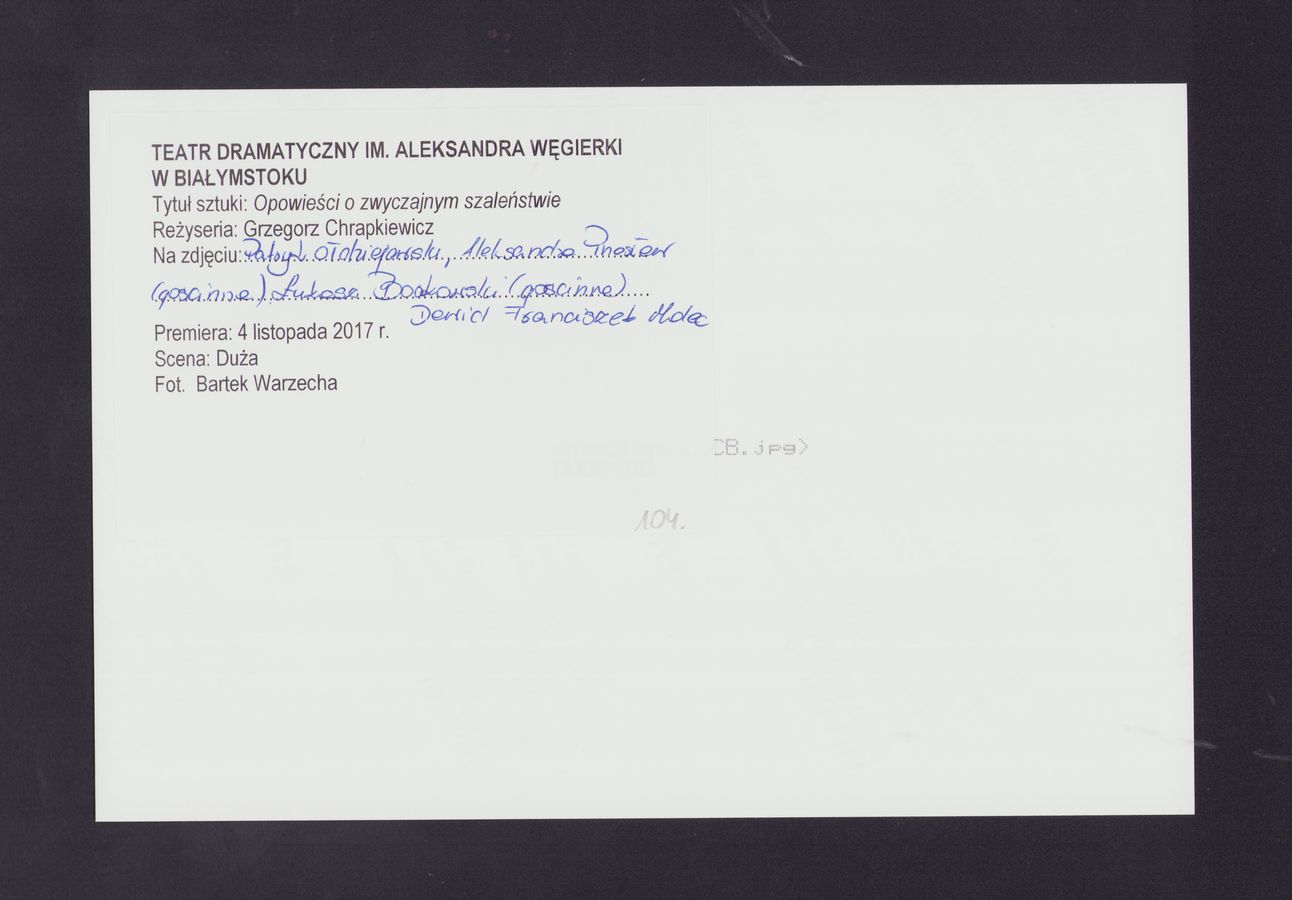 TEATR DRAMATYCZNY IM. ALEKSANDRA WĘGIERKI
W BIAŁYMSTOKU
Tytuł sztuki: Opowieści o zwyczajnym szaleństwie
Reżyseria: Grzegorz Chrapkiewicz
Na zdjęciu: Patryk Ołdziejewski, Aleksandra
(gościnnie) Łukasz Borkowski (gościnnie)
Dawid Franciszek Malec
Premiera: 4 listopada 2017 r.
Scena: Duża
Fot. Bartek Warzecha
CB.jpg)
104.